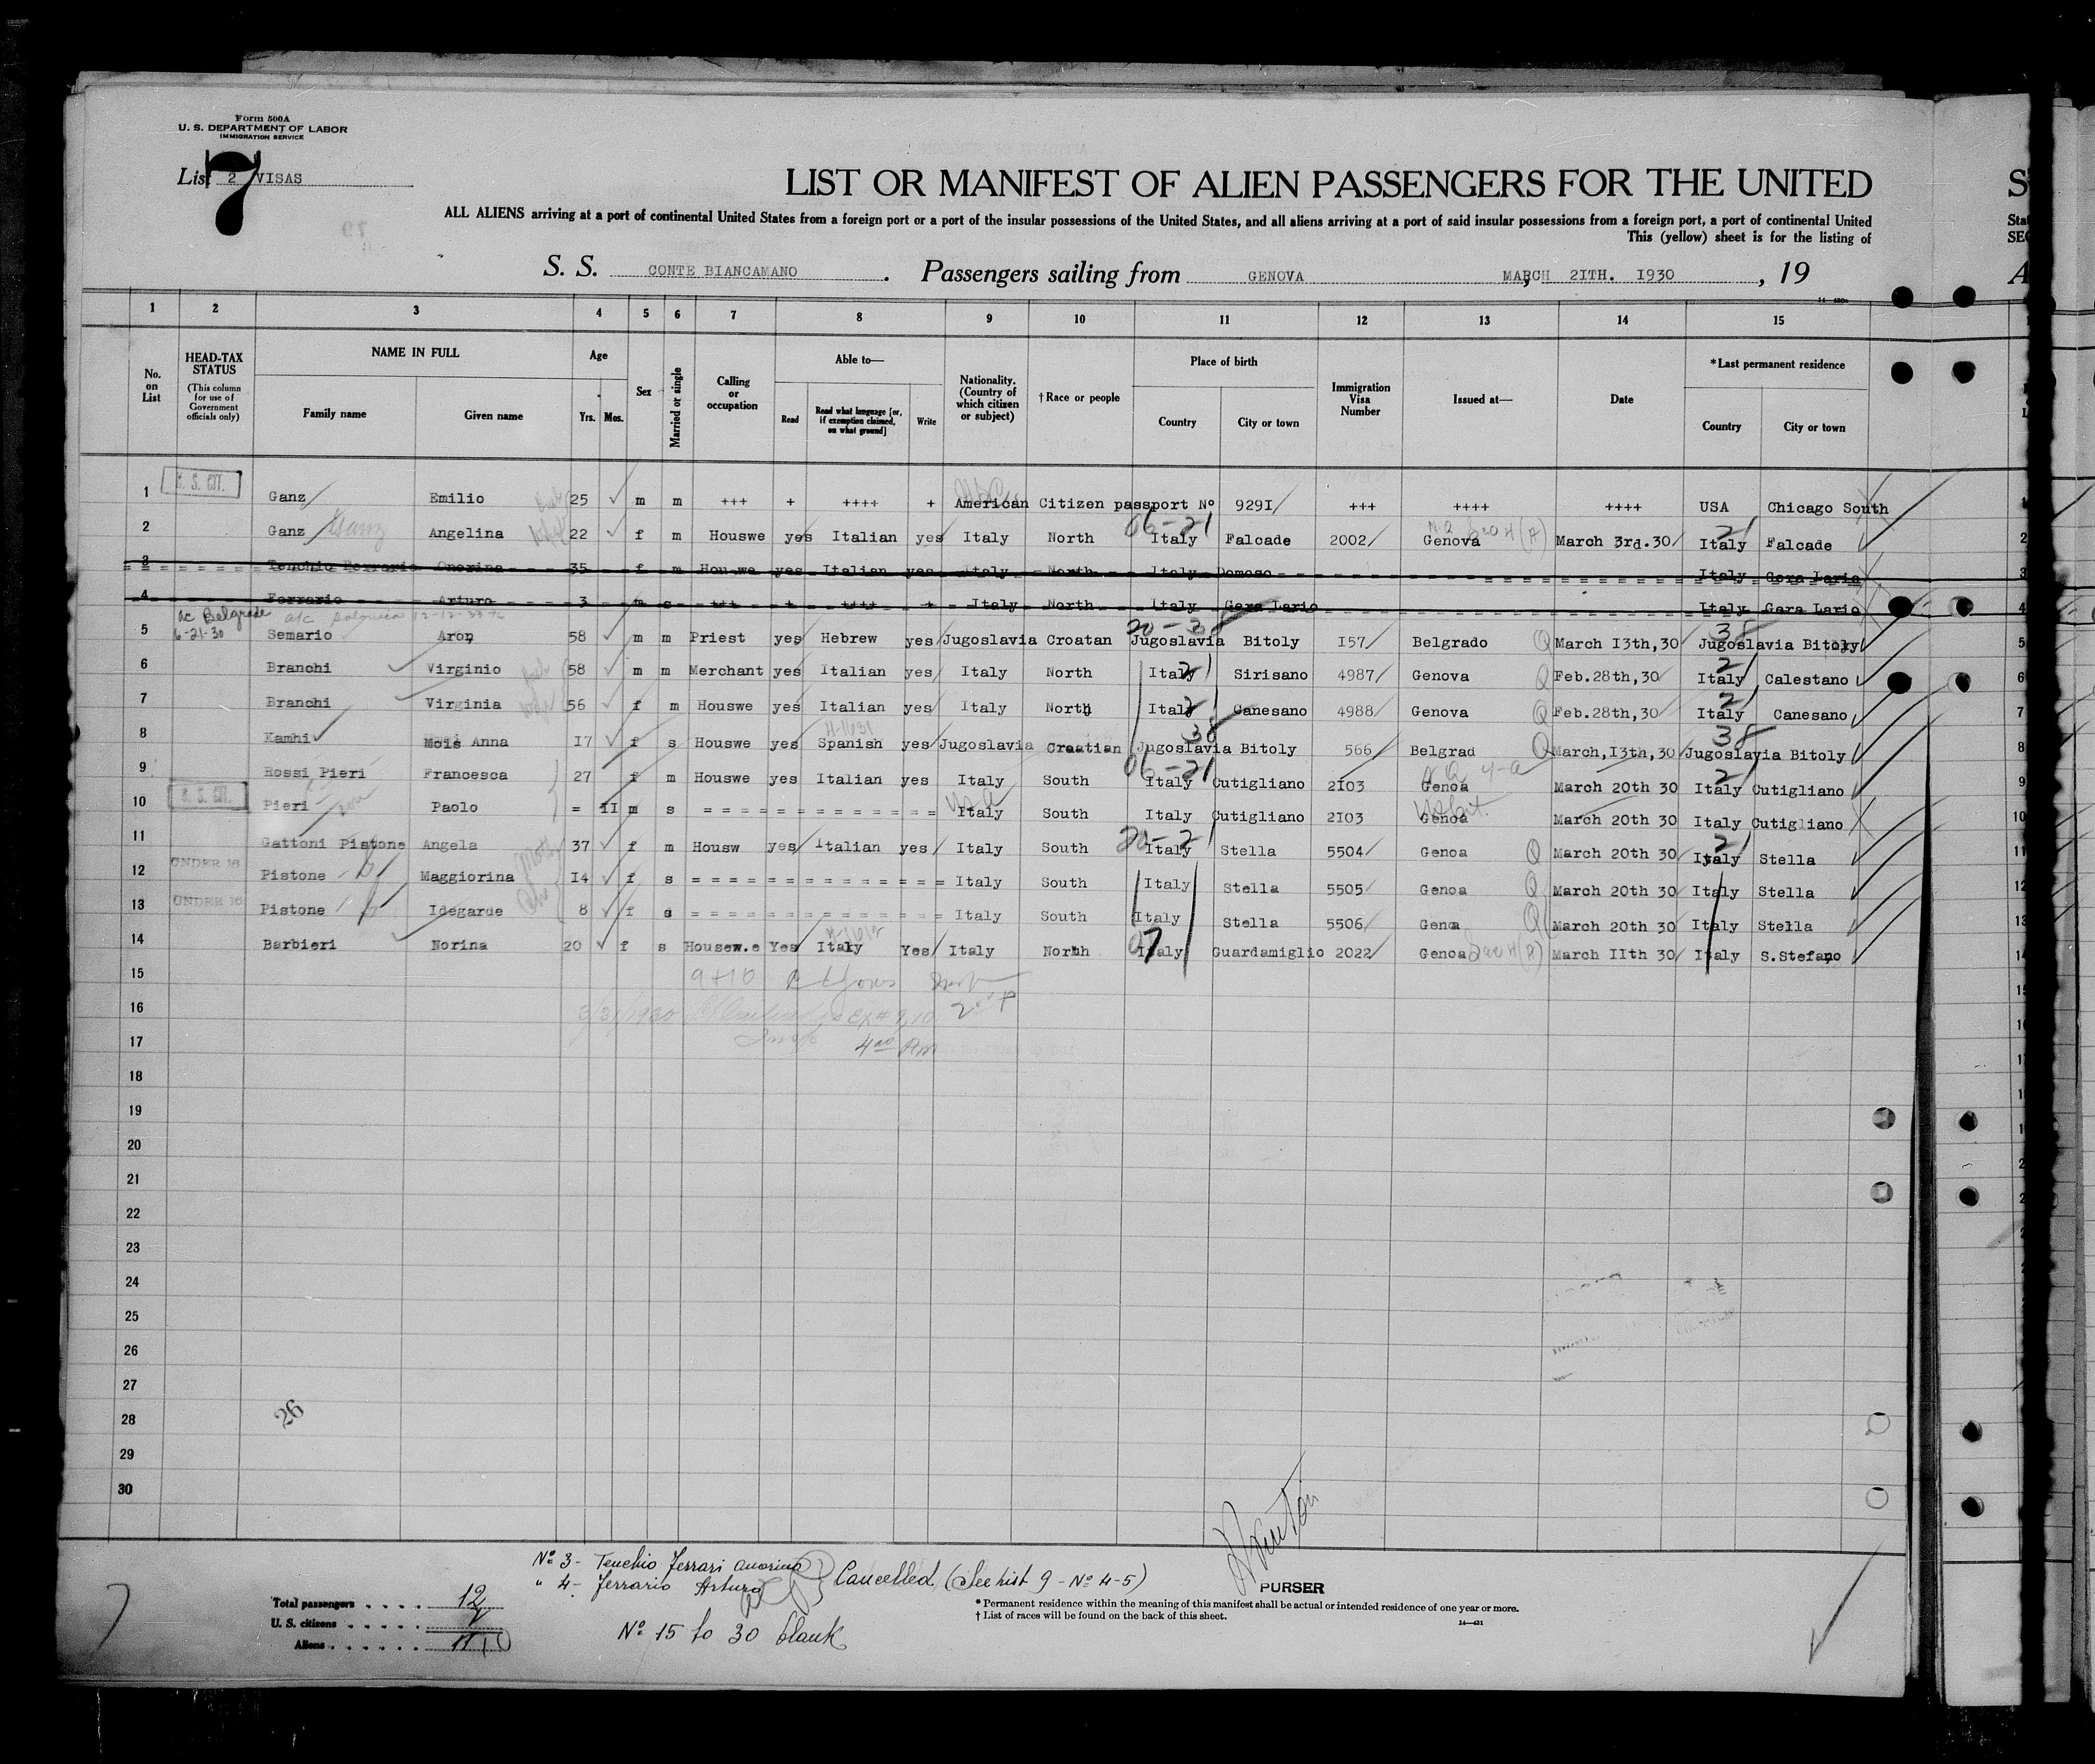 Form 500A
U. S. DEPARTMENT OF LABOR
IMMIGRATION SERVICE
List 2 VISAS
7
LIST OR MANIFEST OF ALIEN PASSENGERS FOR THE UNITED
ALL ALIENS arriving at a port of continental United States from a foreign port or a port of the insular possessions of the United States, and all aliens arriving at a port of said insular possessions from a foreign port, a port of continental United
This (yellow) sheet is for the listing of
S. S. CONTE BIANCAMANO. Passengers sailing from GENOVA MARCH 2ITH. I930, 19
1 2 3 4 5 6 7 8 9 10 11 12 13 14 15
No. on List
HEAD-TAX STATUS
(This column for use of Government officials only)
NAME IN FULL
Family name Given name
Age
Yrs. Mos.
Sex
Married or single
Calling or occupation
Able to—
Read Read what language [or, if exemption claimed, on what ground] Write
Nationality. (Country of which citizen or subject)
†Race or people
Place of birth
Country City or town
Immigration Visa Number
Issued at—
Date
*Last permanent residence
Country City or town
1 Ganz Emilio 25 m m +++ + ++++ + American Citizen passport Nº 929I +++ ++++ ++++ USA Chicago South
2 Ganz Angelina 22 f m Houswe yes Italian yes Italy North 06-21 Italy Falcade 2002 Genova March 3rd.30 21 Italy Falcade
3 Tenchio Ferrario Onorina 35 f m Houswe yes Italian yes Italy North Italy Domoso Italy Gera Lario
4 Ferrario Arturo 3 m s +++ + ++++ + Italy North Italy Gera Lario Italy Gera Lario
ac Belgrade
6-21-30
5 Semario Aron 58 m m Priest yes Hebrew yes Jugoslavia Croatan 20-38 Jugoslavia Bitoly I57 Belgrado Q March I3th,30 38 Jugoslavia Bitoly
6 Branchi Virginio 58 m m Merchant yes Italian yes Italy North Italy Sirisano 4987 Genova Q Feb.28th,30 21 Italy Calestano
7 Branchi Virginia 56 f m Houswe yes Italian yes Italy North Italy Canesano 4988 Genova Q Feb.28th,30 21 Italy Canesano
8 Kamhi Mois Anna I7 f s Houswe yes Spanish yes Jugoslavia Croatian 38 Jugoslavia Bitoly 566 Belgrad Q March,I3th,30 38 Jugoslavia Bitoly
9 Rossi Pieri Francesca 27 f m Houswe yes Italian yes Italy South 06-21 Italy Cutigliano 2I03 Genoa March 20th 30 21 Italy Cutigliano
10 Pieri Paolo = II m s = = = = = = = = = = = = = Italy South Italy Cutigliano 2I03 Genoa March 20th 30 Italy Cutigliano
11 Gattoni Pistone Angela 37 f m Housw yes Italian yes Italy South 20-21 Italy Stella 5504 Genoa Q March 20th 30 21 Italy Stella
UNDER 16
12 Pistone Maggiorina I4 f s = = = = = = = = = = = = = Italy South Italy Stella 5505 Genoa Q March 20th 30 Italy Stella
UNDER 16
13 Pistone Idegarde 8 f s = = = = = = = = = = = = = Italy South Italy Stella 5506 Genoa Q March 20th 30 Italy Stella
14 Barbieri Norina 20 f s Housew.e Yes Italy Yes Italy North Italy Guardamiglio 2022 Genoa March IIth 30 Italy S.Stefano
15 9+10
16 3/31/1930
17 4 00 Pm
18
19
20
21
22
23
24
25
26
27
28
29
30
26
Nº 3 - Tenchio Ferrari Anorina
" 4 - Ferrario Arturo
Cancelled (See list 9 - Nº 4-5)
Nº 15 to 30 blank
Total passengers 12
U. S. citizens
Aliens 10
PURSER
* Permanent residence within the meaning of this manifest shall be actual or intended residence of one year or more.
† List of races will be found on the back of this sheet.
14—421